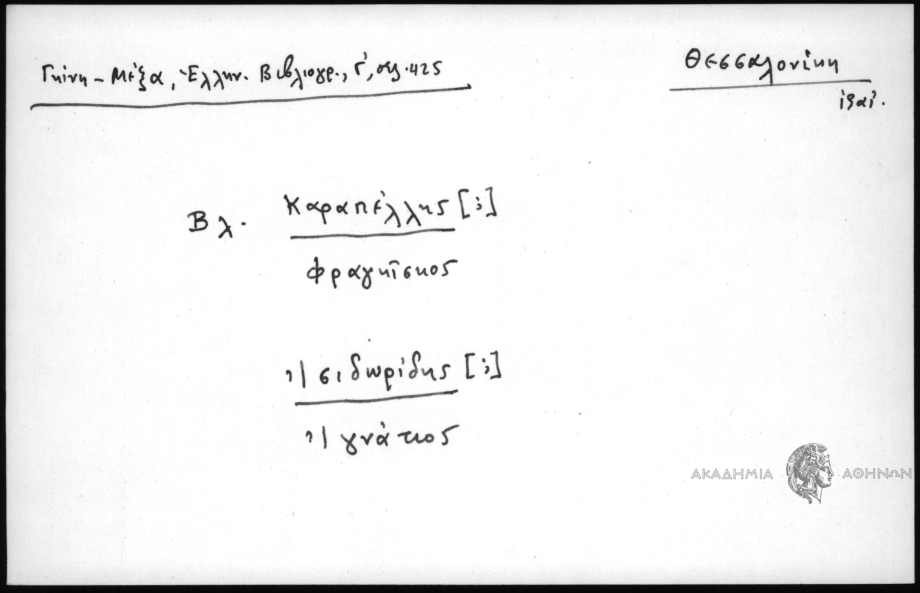 Γκίνη - Μέξα, Ἑλλην. Βιβλιογρ., Γ', σελ. 425
Θεσσαλονίκη
ἰδαί.
Βλ. Καραπέλλης [;]
Φραγκῖσκος
Ἰσιδωρίδης [;]
Ἰγνάτιος
ΑΚΑΔΗΜΙΑ ΑΘΗΝΩΝ